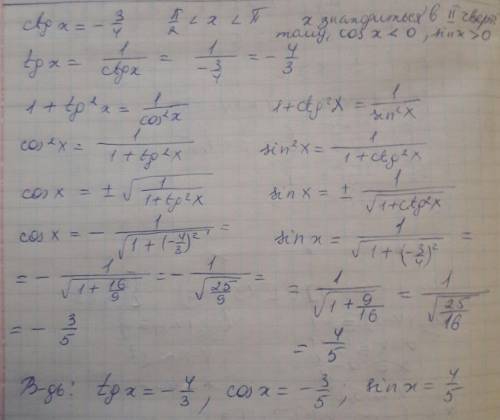 ctg x = - 3/4    π/2 < x < π    x знаходиться в II чверті
тому, cos x < 0, sin x > 0
tg x = 1/ctg x = 1/(-3/4) = - 4/3
1 + tg²x = 1/cos²x    1 + ctg²x = 1/sin²x
cos²x = 1/(1 + tg²x)    sin²x = 1/(1 + ctg²x)
cos x = ± √(1/(1 + tg²x))    sin x = ± 1/√(1 + ctg²x)
cos x = - 1/√(1 + (-4/3)²) =    sin x = 1/√(1 + (-3/4)²) =
= - 1/√(1 + 16/9) = - 1/√(25/9) =    = 1/√(1 + 9/16) = 1/√(25/16)
= - 3/5    = 4/5
В-дь: tg x = - 4/3, cos x = - 3/5; sin x = 4/5